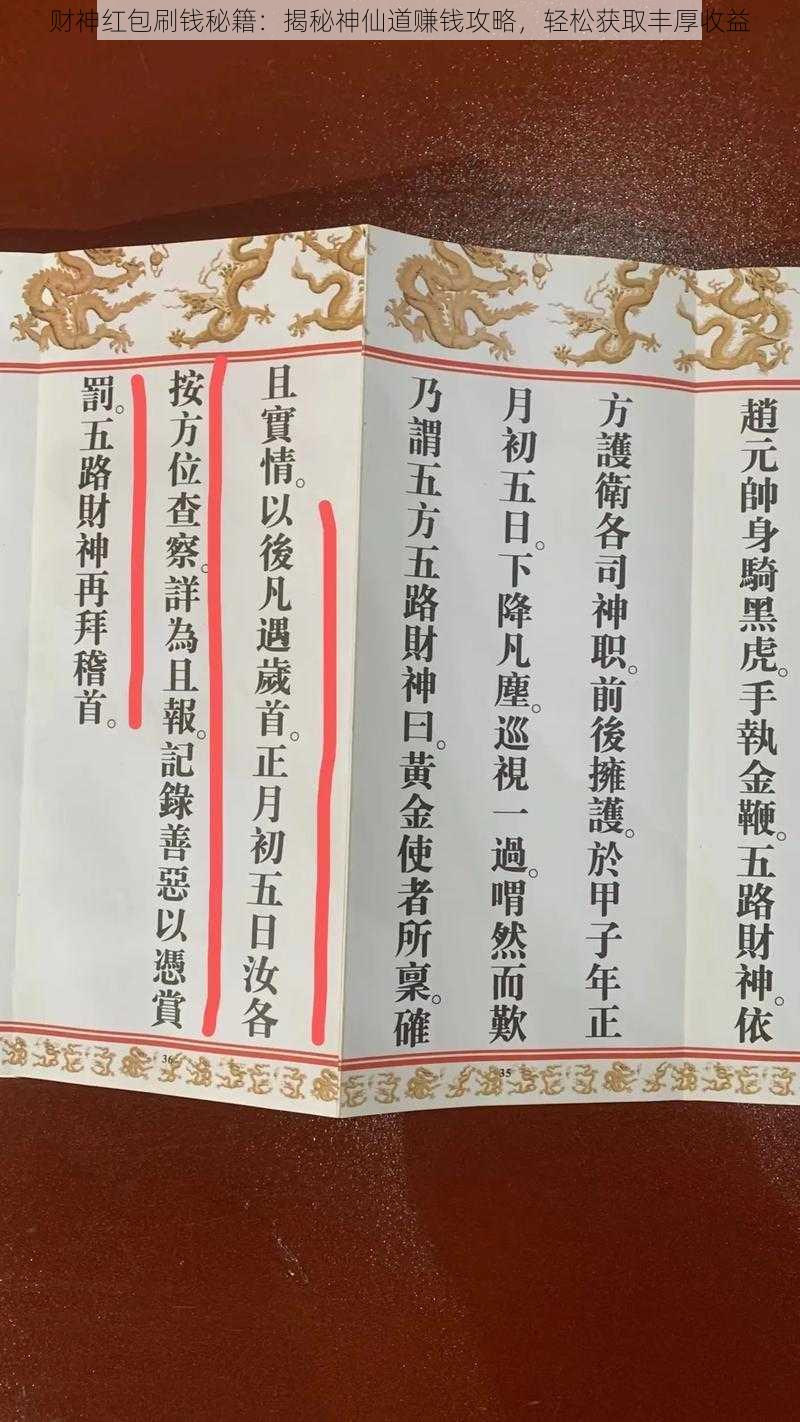 财神红包刷钱秘籍：揭秘神仙道赚钱攻略，轻松获取丰厚收益
趙元帥身騎黑虎。手執金鞭。五路財神。依
方護衛各司神职。前後擁護。於甲子年正
月初五日。下降凡塵。巡視一過。喟然而歎
乃謂五方五路財神曰。黃金使者所稟。確
且實情。以後凡遇歲首。正月初五日汝各
按方位查察。詳為且報。記錄善惡以憑賞
罰。五路財神再拜稽首。
35
36